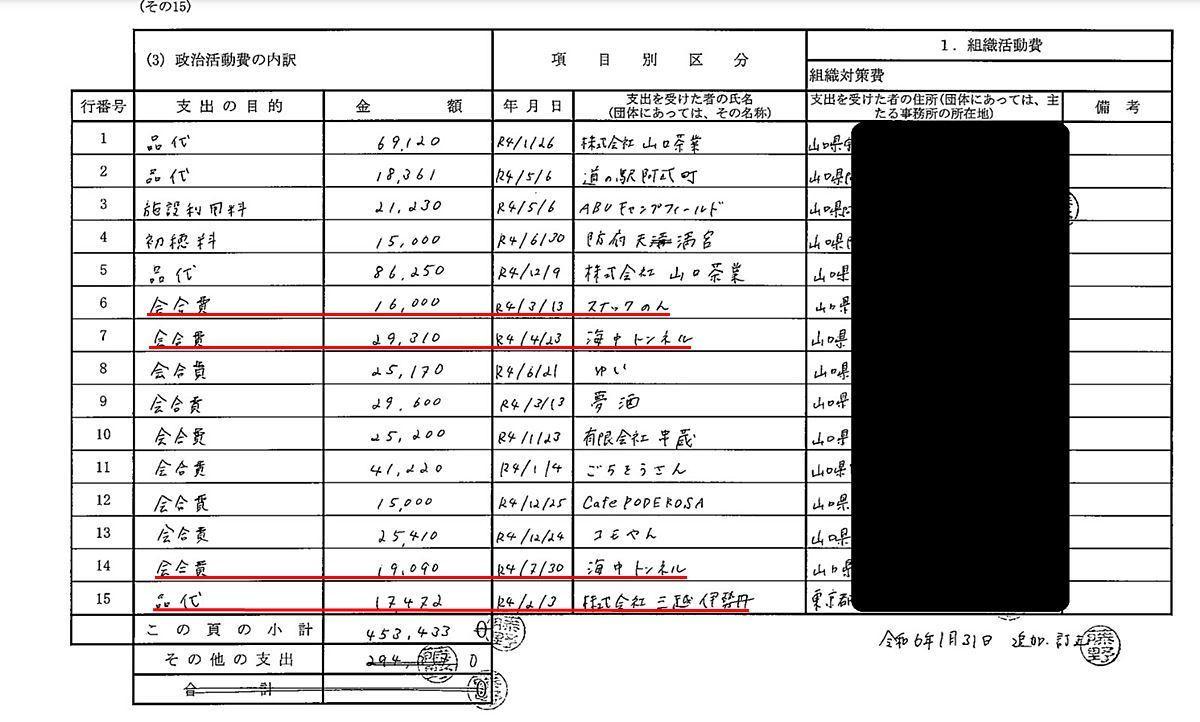 (その15)
(3) 政治活動費の内訳 項目別区分 1. 組織活動費
組織対策費
行番号 支出の目的 金額 年月日 支出を受けた者の氏名(団体にあっては、その名称) 支出を受けた者の住所(団体にあっては、主たる事務所の所在地) 備考
1 品代 69,120 R4/1/26 株式会社 山口茶業 山口県
2 品代 18,361 R4/5/6 道の駅阿武町 山口県
3 施設利用料 21,230 R4/5/6 ABUキャンプフィールド 山口県
4 初穂料 15,000 R4/6/30 防府天満宮 山口県
5 品代 86,250 R4/12/9 株式会社 山口茶業 山口県
6 会合費 16,000 R4/3/13 スナックのん 山口県
7 会合費 29,310 R4/4/23 海中トンネル 山口県
8 会合費 25,170 R4/6/21 ゆい 山口県
9 会合費 29,600 R4/3/13 夢酒 山口県
10 会合費 25,200 R4/1/23 有限会社 半蔵 山口県
11 会合費 41,220 R4/1/4 ごちそうさん 山口県
12 会合費 15,000 R4/12/25 Cafe PODEROSA 山口県
13 会合費 25,410 R4/12/24 コモやん 山口県
14 会合費 19,090 R4/7/30 海中トンネル 山口県
15 品代 17,472 R4/2/3 株式会社 三越伊勢丹 東京都
この頁の小計 453,433 0
その他の支出 294, 0
合計 0
令和6年1月31日 追加.訂正